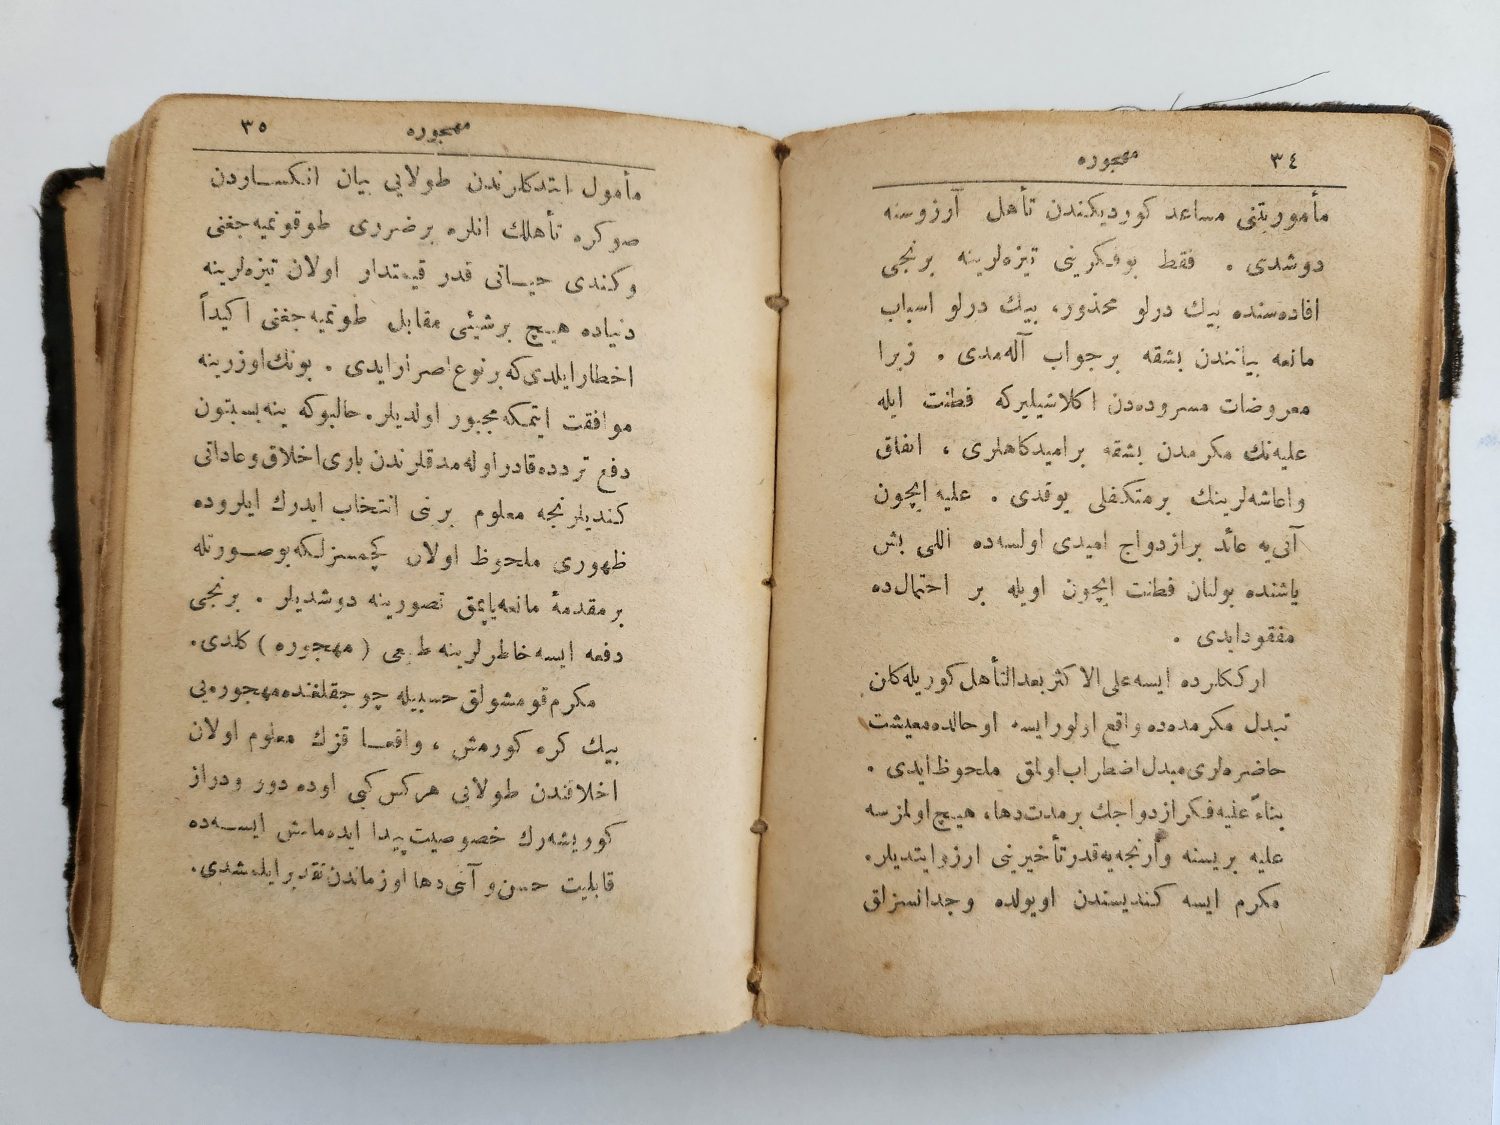 ٣٤
مهجوره
مأموريتنى مساعد كورديكندن تأهل آرزوسنه
دوشدى . فقط بوفكرينى تيزه‌لرينه برنجى
افاده‌سنده بيك درلو محذور، بيك درلو اسباب
مانعه بياننندن بشقه برجواب آله‌مدى . زيرا
معروضات مسروده‌دن اكلاشيليركه فطنت ايله
عليه‌نك مكرمدن بشقه براميدكاهلرى ، انفاق
واعاشه‌لرينك برمتكفلى يوقدى . عليه ايچون
آتى‌يه عائد برازدواج اميدى اولسه‌ده اللى بش
ياشنده بولنان فطنت ايچون اويله بر احتمال‌ده
مفقودايدى .
ارككلرده ايسه على الاكثر بعدالتأهل كوريله‌كان
تبدل مكرمده‌ده واقع اولور ايسه اوحالده‌معيشت
حاضره‌لرى مبدل اضطراب اولمق ملحوظ ايدى .
بناءً عليه‌فكر ازدواجك برمدت‌دها، هيچ اولمزسه
عليه بريسنه وارنجه‌يه‌قدرتأخيرينى ارزوايتديلر.
مكرم ايسه كنديسندن اويولده وجدانسزلق
٣٥
مهجوره
مأمول ايتدكلرندن طولايى بيان انكساردن
صوكره تأهلك انلره برضررى طوقونميه‌جغنى
وكندى حياتى قدر قيمتدار اولان تيزه‌لرينه
دنياده هيچ برشيئى مقابل طوتميه‌جغنى اكيداً
اخطارايلدى‌كه برنوع اصرار ايدى . بونك‌اوزرينه
موافقت ايتمكه‌مجبور اولديلر. حالبوكه ينه‌بسبتون
دفع تردده‌قادر اوله‌مدقلرندن بارى اخلاق وعاداتى
كنديلرنجه معلوم برينى انتخاب ايدرك ايلروده
ظهورى ملحوظ اولان كچمسزلكه‌بوصورتله
برمقدمهٔ مانعه‌ياپمق تصورينه دوشديلر . برنجى
دفعه ايسه‌خاطرلرينه طبيعى ( مهجوره ) كلدى.
مكرم‌قومشولق حسبيله چوجقلغنده‌مهجوره‌يى
بيك كره كورمش ، واقعا قزك معلوم اولان
اخلاقندن طولايى هركس‌كبى اوده دور ودراز
كوريشه‌رك خصوصيت‌پيدا ايده‌مامش ايسه‌ده
قابليت حسن‌و آنى‌دها اوزماندن‌تقديرايله‌شدى.